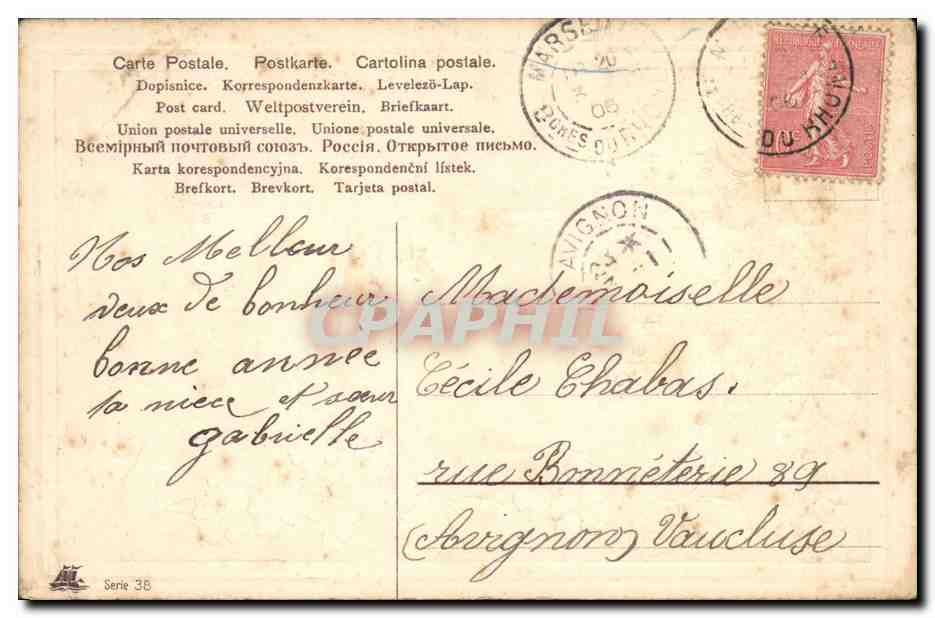 Carte Postale. Postkarte. Cartolina postale.
Dopisnice. Korrespondenzkarte. Levelező-Lap.
Post card. Weltpostverein. Briefkaart.
Union postale universelle. Unione postale universale.
Всемірный почтовый союзъ. Россія. Открытое письмо.
Karta korespondencyjna. Korespondenční lístek.
Brefkort. Brevkort. Tarjeta postal.
MARSEILLE
05
BCHES DU RHONE
DU RHONE
AVIGNON
Nos Melleur
veux de bonheur
bonne année
ta niece et sœur
gabrielle
Mademoiselle
Cécile Chabas.
rue Bonnéterie 89
(Avignon) Vaucluse
CPAPHIL
Serie 38